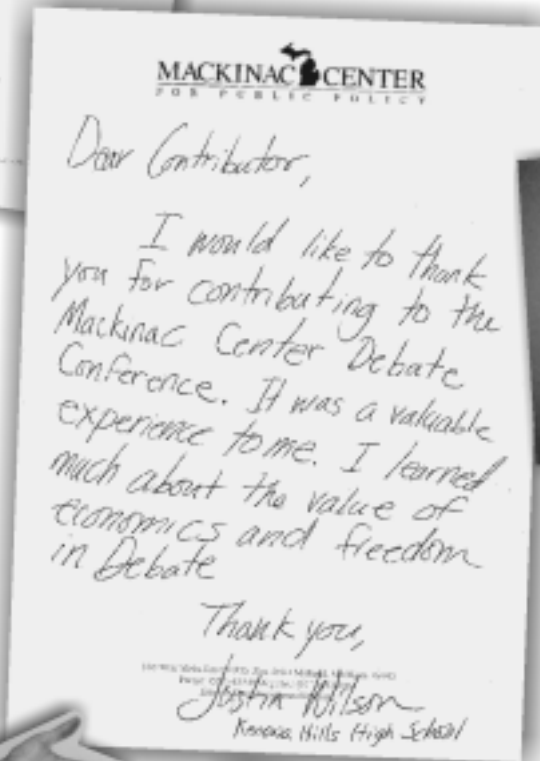 MACKINAC CENTER
FOR PUBLIC POLICY
Dear Contributor,
I would like to thank
you for contributing to the
Mackinac Center Debate
Conference. It was a valuable
experience to me. I learned
much about the value of
economics and freedom
in Debate
Thank you,
Justin Wilson
Kenowa Hills High School